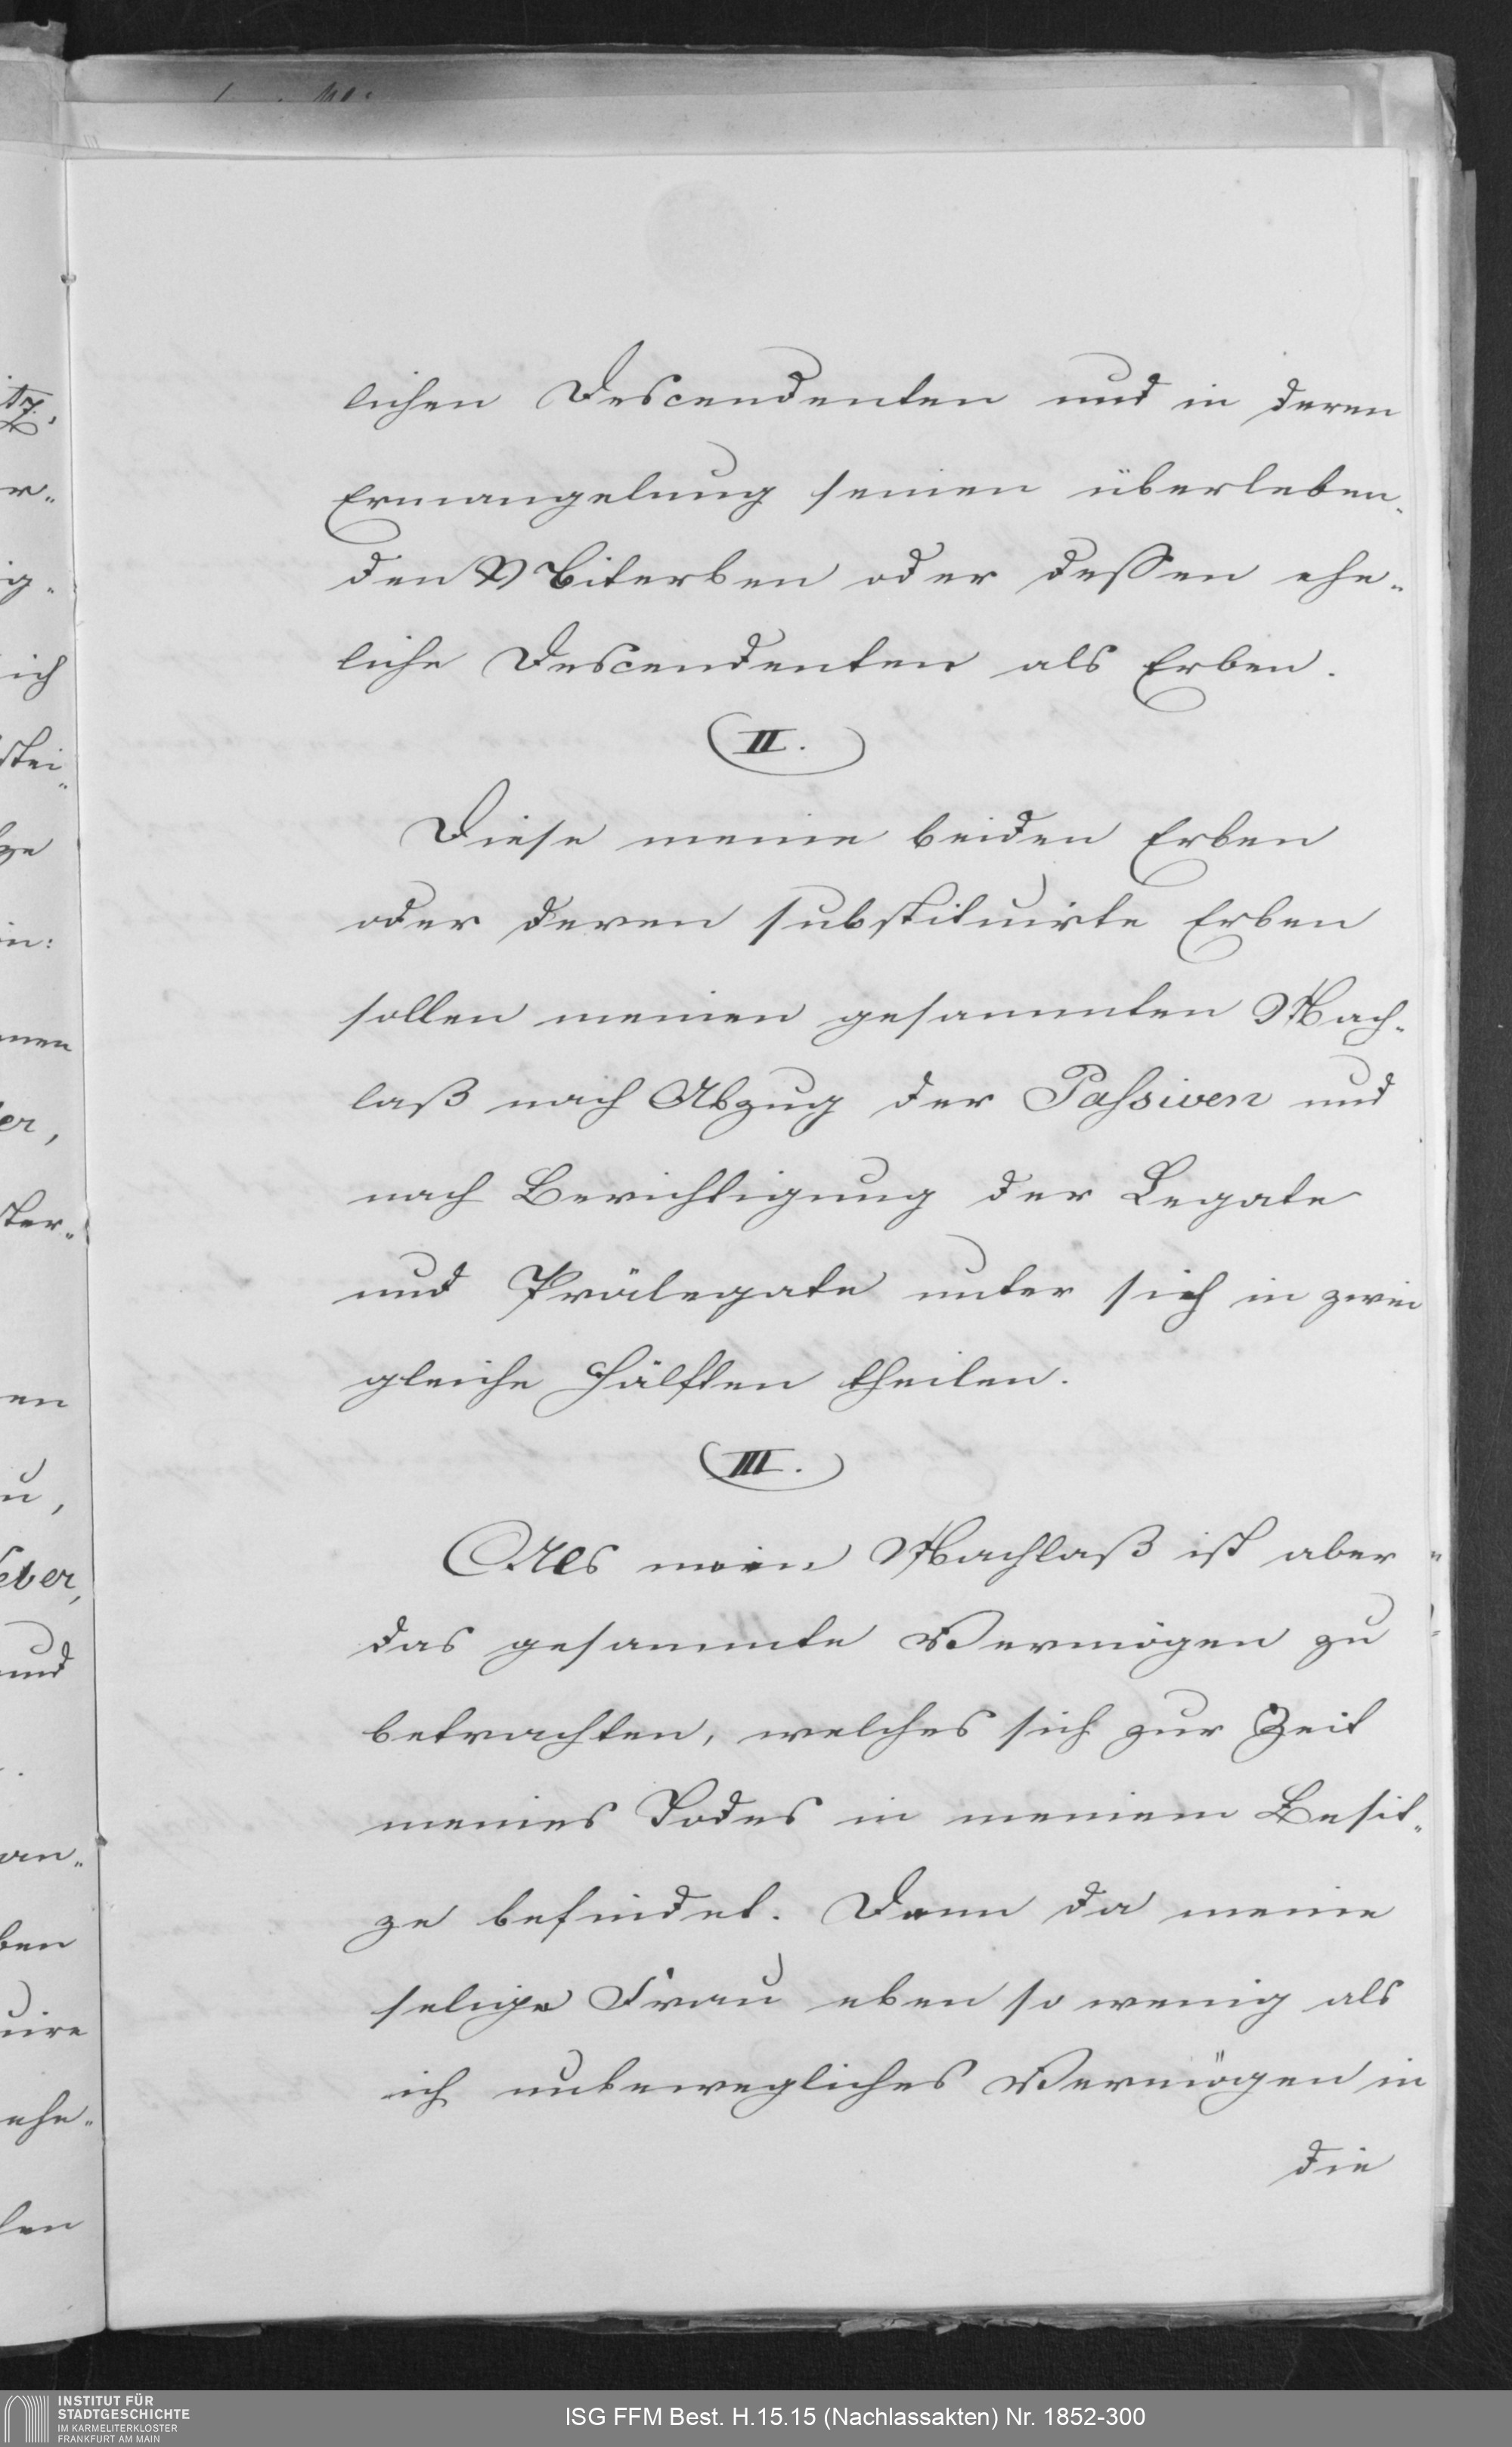 lichen Descendenten und in deren
Ermangelung seinen überleben-
den Miterben oder dessen ehe-
liche Descendenten als Erben.
II.
Diese meine beiden Erben
oder deren substituirte Erben
sollen meinen gesammten Nach-
laß nach Abzug der Passiven und
nach Berichtigung der Legate
und Prälegate unter sich in zwei
gleiche Hälften theilen.
III.
Als mein Nachlaß ist aber
das gesammte Vermögen zu
betrachten, welches sich zur Zeit
meines Todes in meinem Besit-
ze befindet. Denn da meine
selige Frau eben so wenig als
ich unbewegliches Vermögen in
die
INSTITUT FÜR
STADTGESCHICHTE
IM KARMELITERKLOSTER
FRANKFURT AM MAIN
ISG FFM Best. H.15.15 (Nachlassakten) Nr. 1852-300